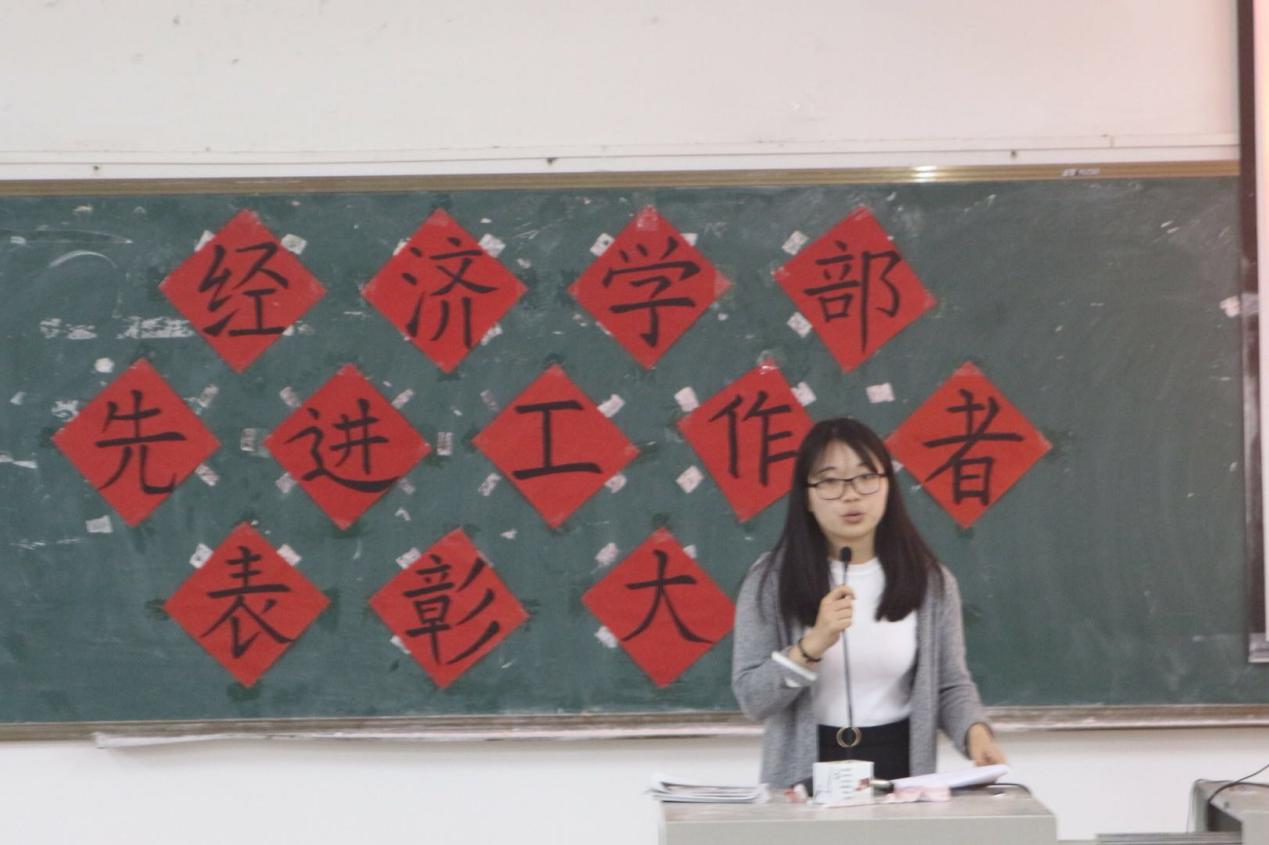 经济学部
先进工作者
表彰大